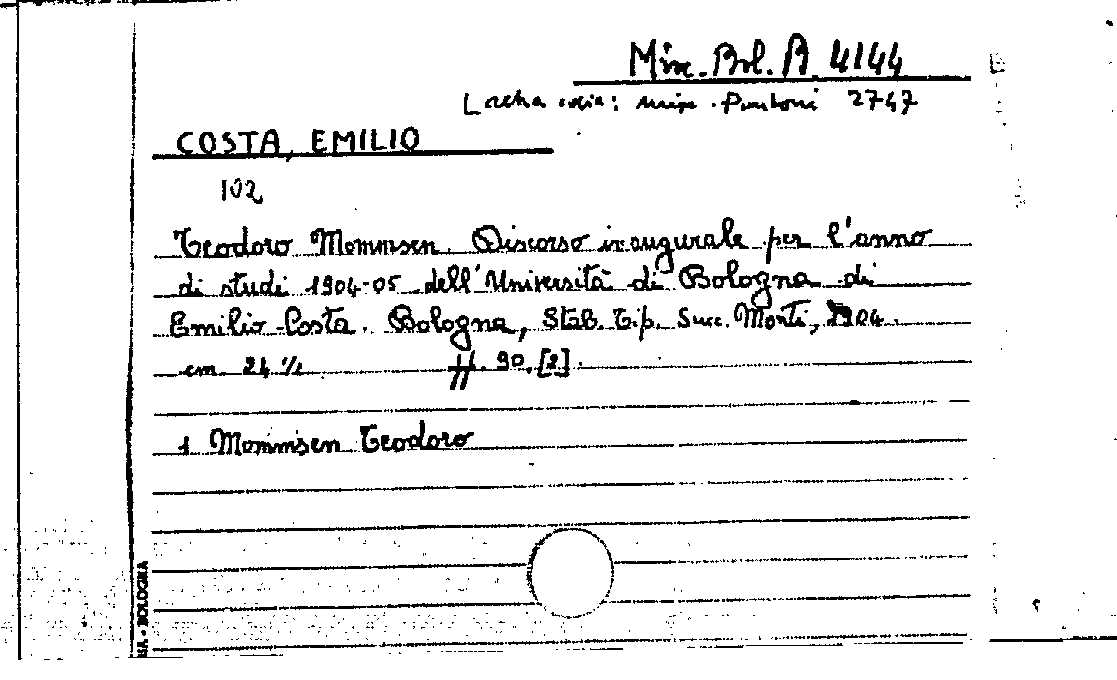 Misc. Bol. A 4144
copia: misc. Puntoni 2747
COSTA, EMILIO
102
Teodoro Mommsen. Discorso inaugurale per l'anno
di studi 1904-05 dell'Università di Bologna di
Emilio Costa. Bologna, Stab. Tip. Succ. Monti, 1904.
cm. 24 ½ pp. 90, [2].
1 Mommsen Teodoro
BOLOGNA